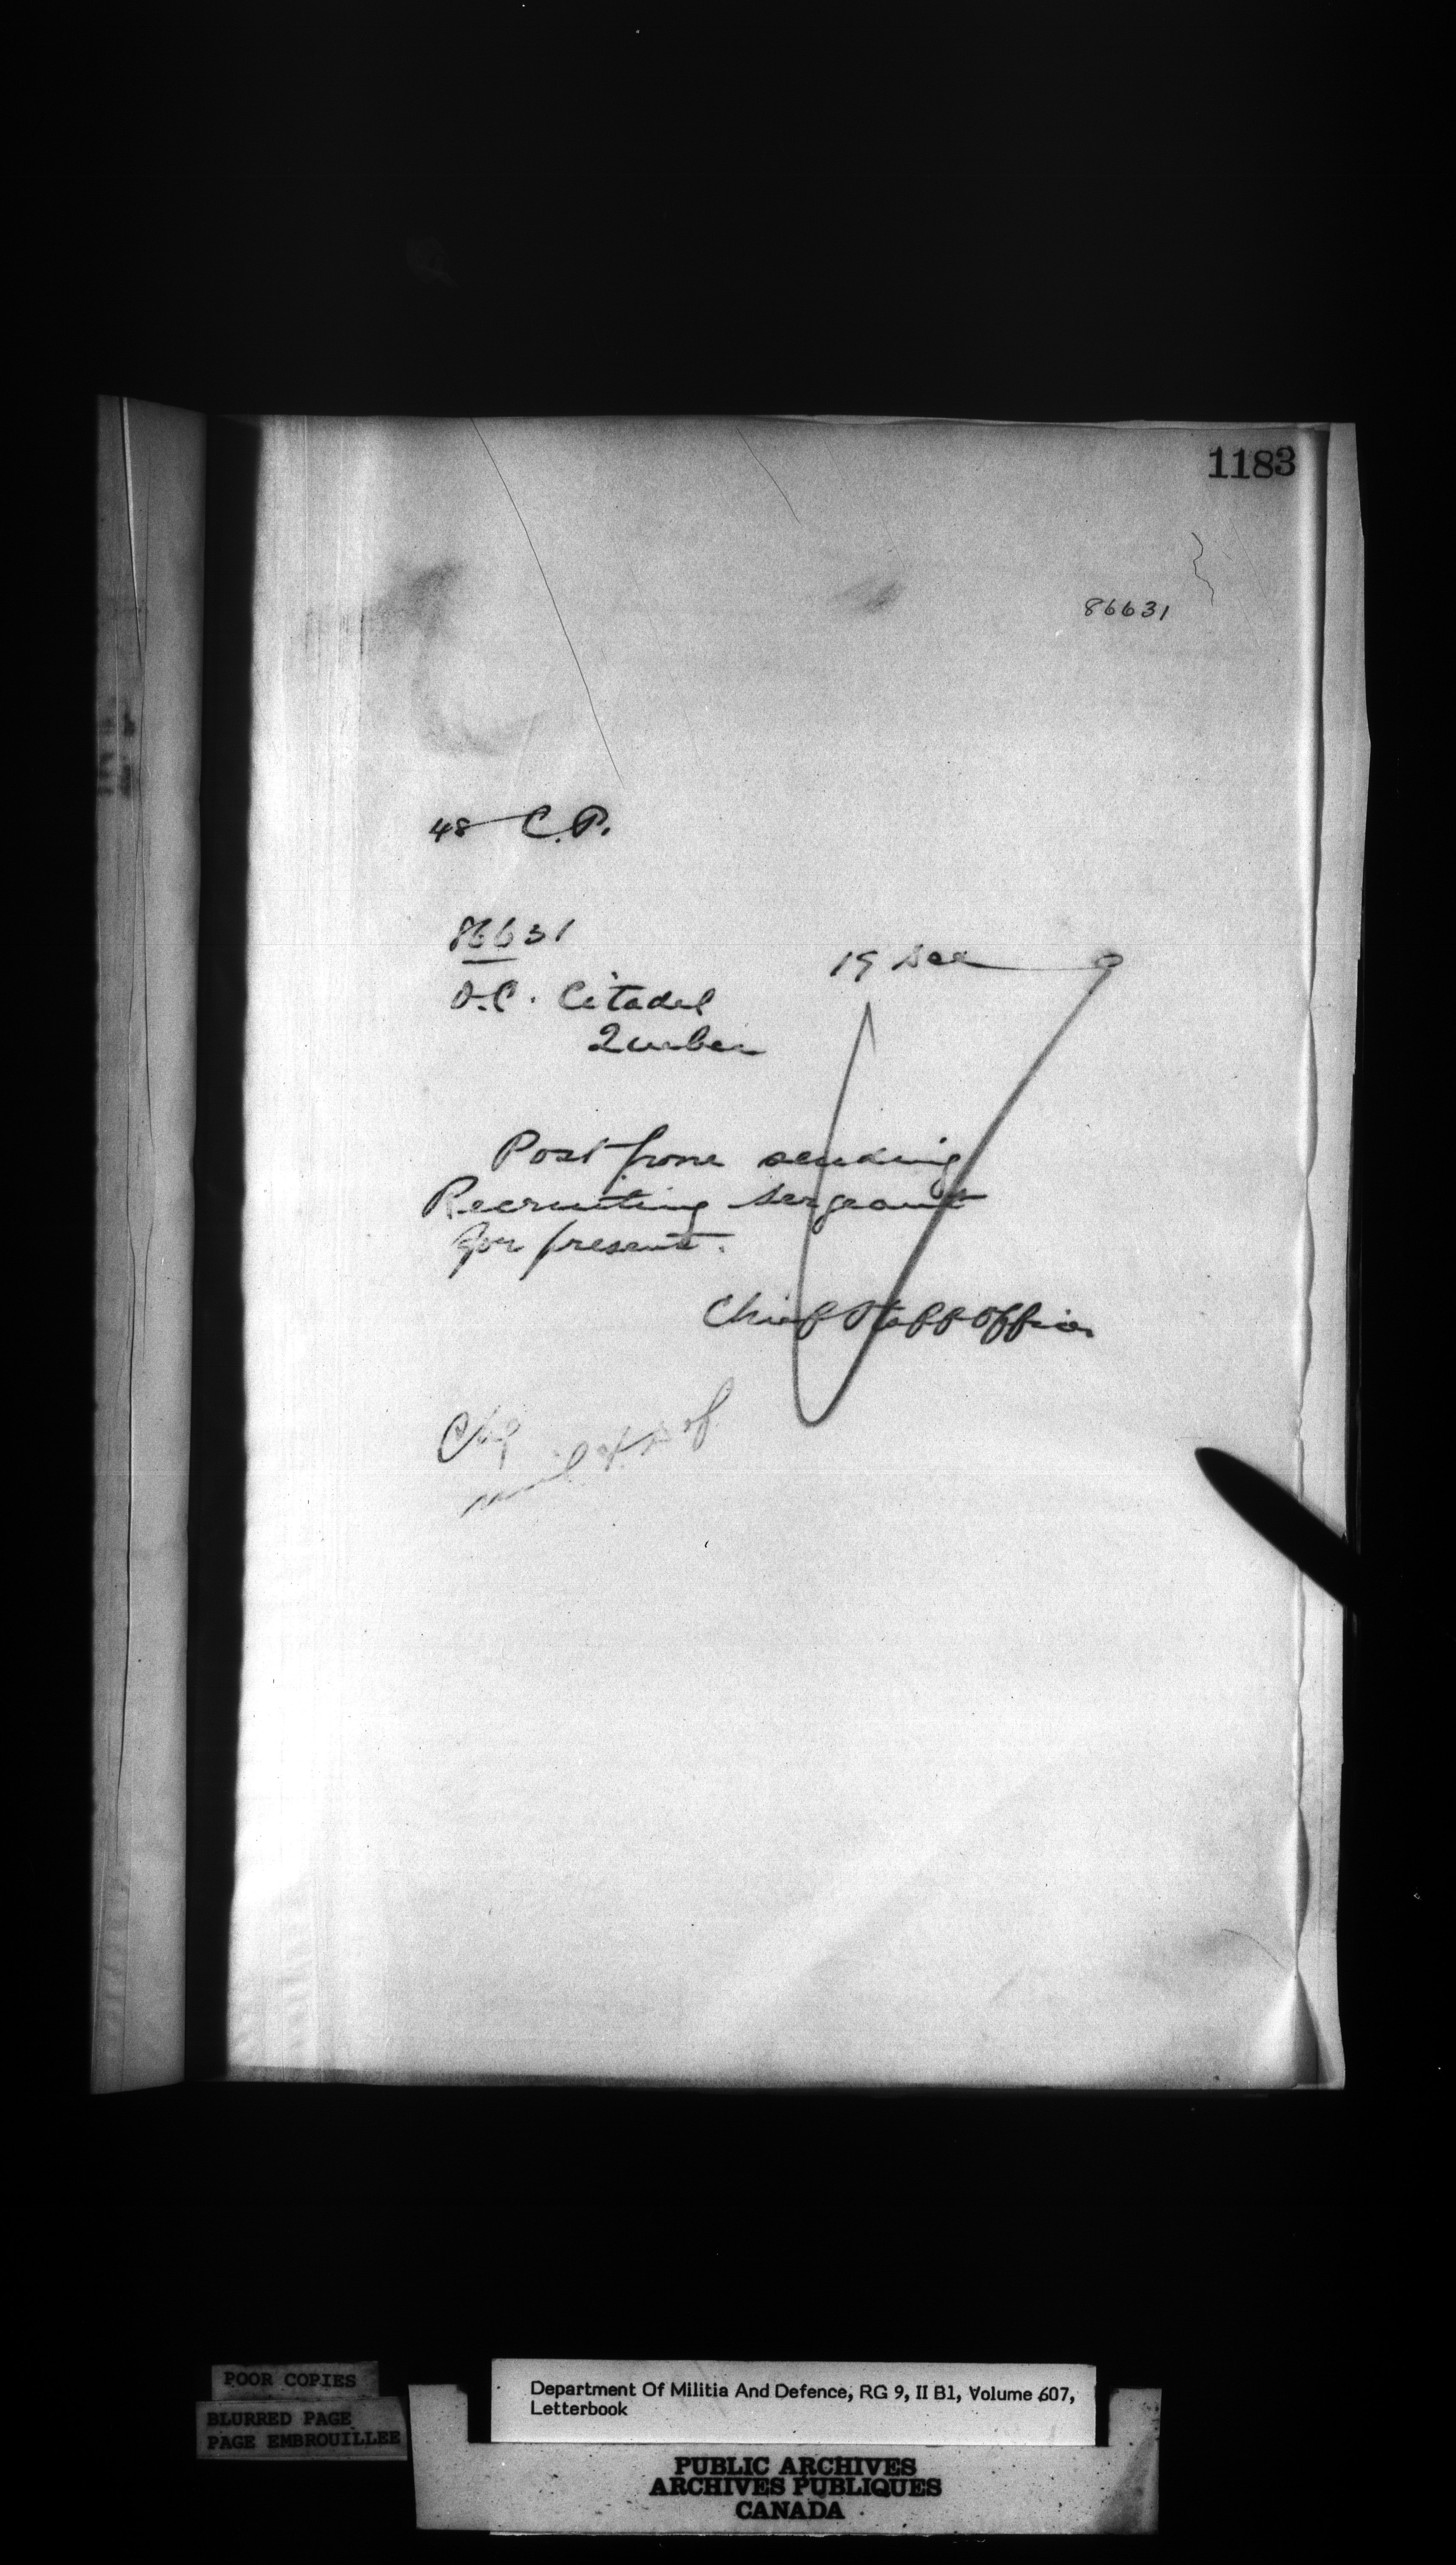 1183
86631
48 C.P.
86631
19 Dec 0
O.C. Citadel
Quebec
Postpone sending
Recruiting Sergeant
for present.
Chief Staff Officer
Chg
mil & Def
POOR COPIES
BLURRED PAGE
PAGE EMBROUILLEE
Department Of Militia And Defence, RG 9, II B1, Volume 607,
Letterbook
PUBLIC ARCHIVES
ARCHIVES PUBLIQUES
CANADA